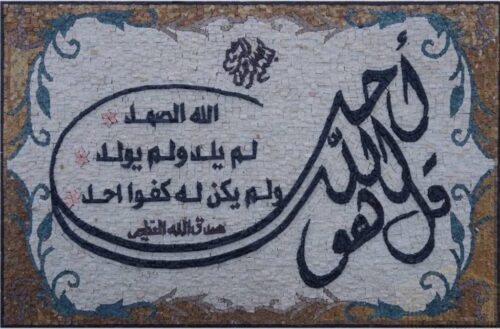 بسم الله الرحمن الرحيم
قل هو الله أحد
الله الصمد
لم يلد ولم يولد
ولم يكن له كفوا احد
صدق الله العظيم